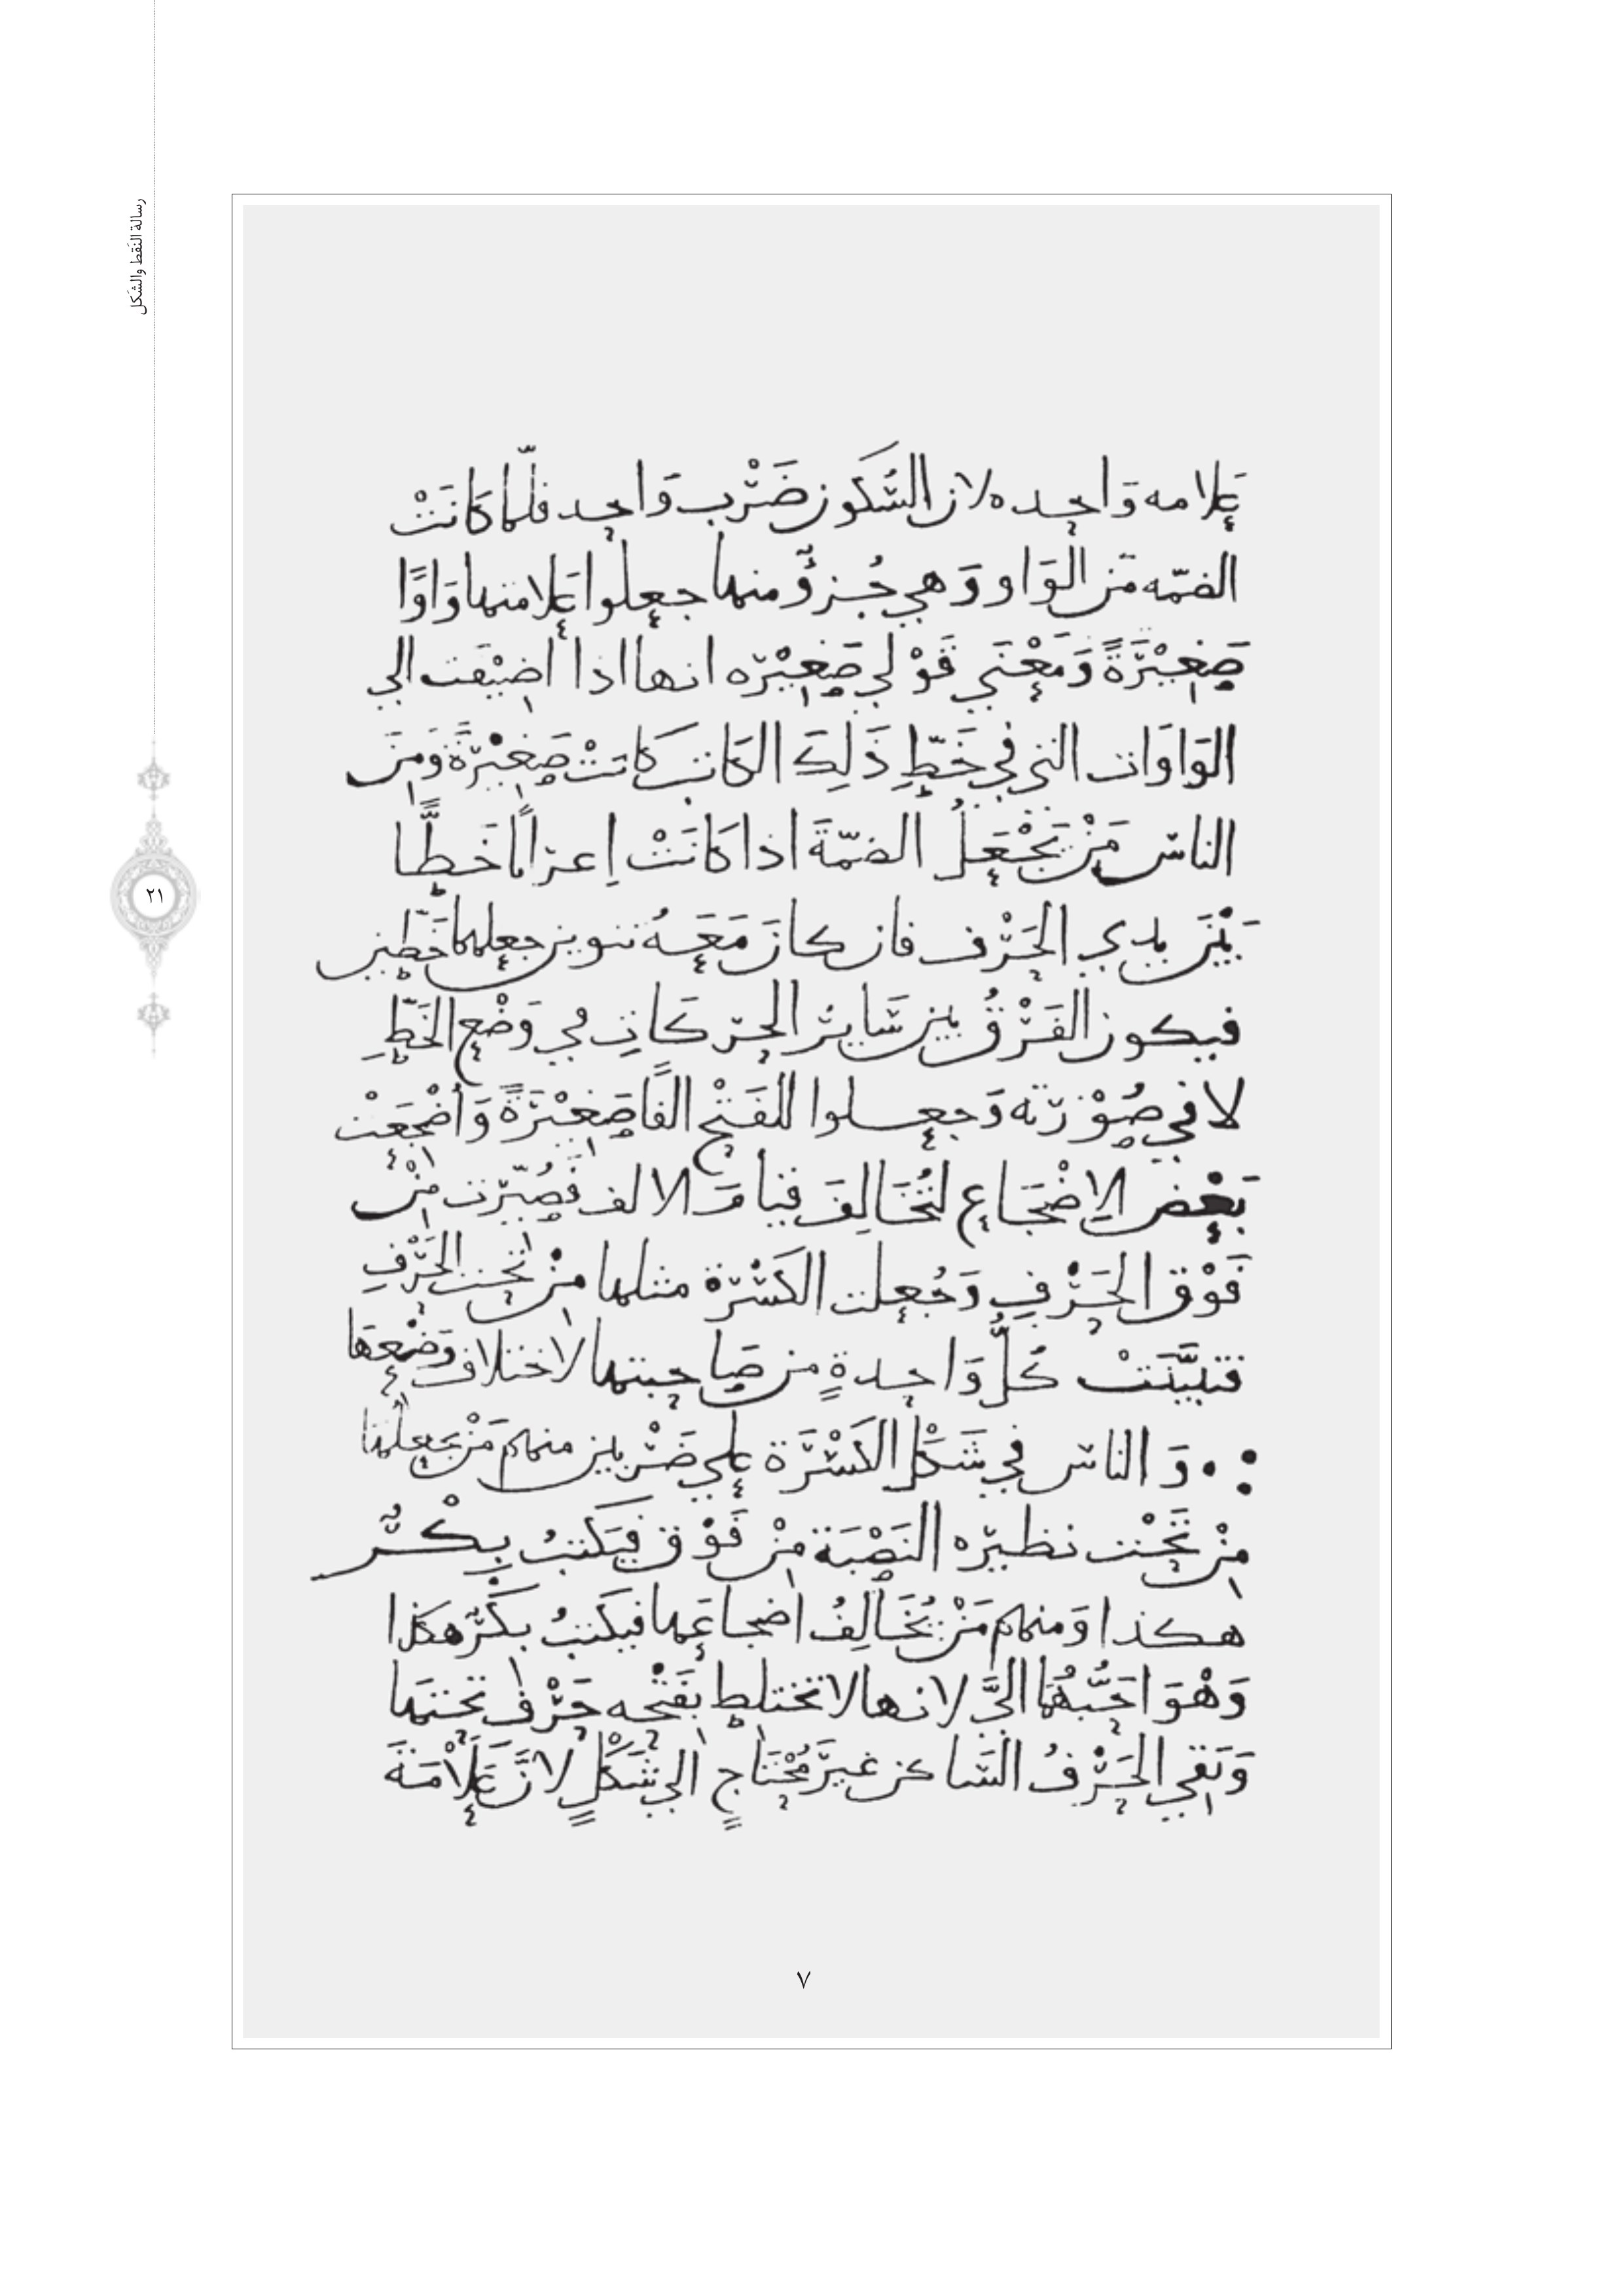 رسالة النقط والشكل
٢١
عَلامه وَاحِده لان السُّكون ضَرْب وَاحِد فلَمّا كَانَتْ
الضمّه مَن الوَاو وَهي جُزؤٌ منها جعلوا عَلامتها وَاوًا
صَغِيْرَةً وَمَعْنَي قَوْلي صَغِيْرَه انها اذا اضِيْفَت الي
الوَاوَات التي في خَطِّ ذَلِكَ الكَاتب كَانَتْ صَغِيْرَةً وَمِنَ
الناس مَنْ يَجْعَلُ الضمّةَ اذا كَانَتْ إعرابًا خَطًّا
بَيْنَ يدي الحَرْف فان كانَ مَعَهُ تنوين جعلهما خَطّين
فيكون الفَرْقُ بين سَاير الحرَكَاتِ في وَضْع الخَطِّ
لا في صُوْرَته وَجعلوا للفَتْح الفًا صَغِيْرَةً وَاُضْجِعَتْ
بَعْضَ الاِضْجَاعِ لتُخَالِفَ قيامَ الالف فَصُيّرَت مِنْ
فَوْق الحَرْفِ وَجُعلت الكَسْرَة مثلها مِنْ تَحْت الحَرْفِ
فتبيّنَتْ كُلُّ وَاحِدةٍ من صَاحِبتها لاِختلاف وَضْعهَا
وَ الناس في شَكْل الكَسْرَة علي ضَرْبين منهم مَنْ يَجعلُهَا
مِنْ تَحْت نظيرَه النَصْبَة مِنْ فَوْق فيَكتبُ بِكْرٌ
هكذا وَمنهم مَنْ يُخَالِفُ اضجاعَها فيكتبُ بكْرٌ هكذا
وَهْوَ احَبُّهُمَا اليَّ لانها لا تختلط بفَتْحِه حَرْفٍ تحتهَا
وَبَقي الحَرْفُ السَاكن غيرَ مُحْتَاجٍ اِلي شَكْلٍ لانَّ عَلَامَةَ
٧